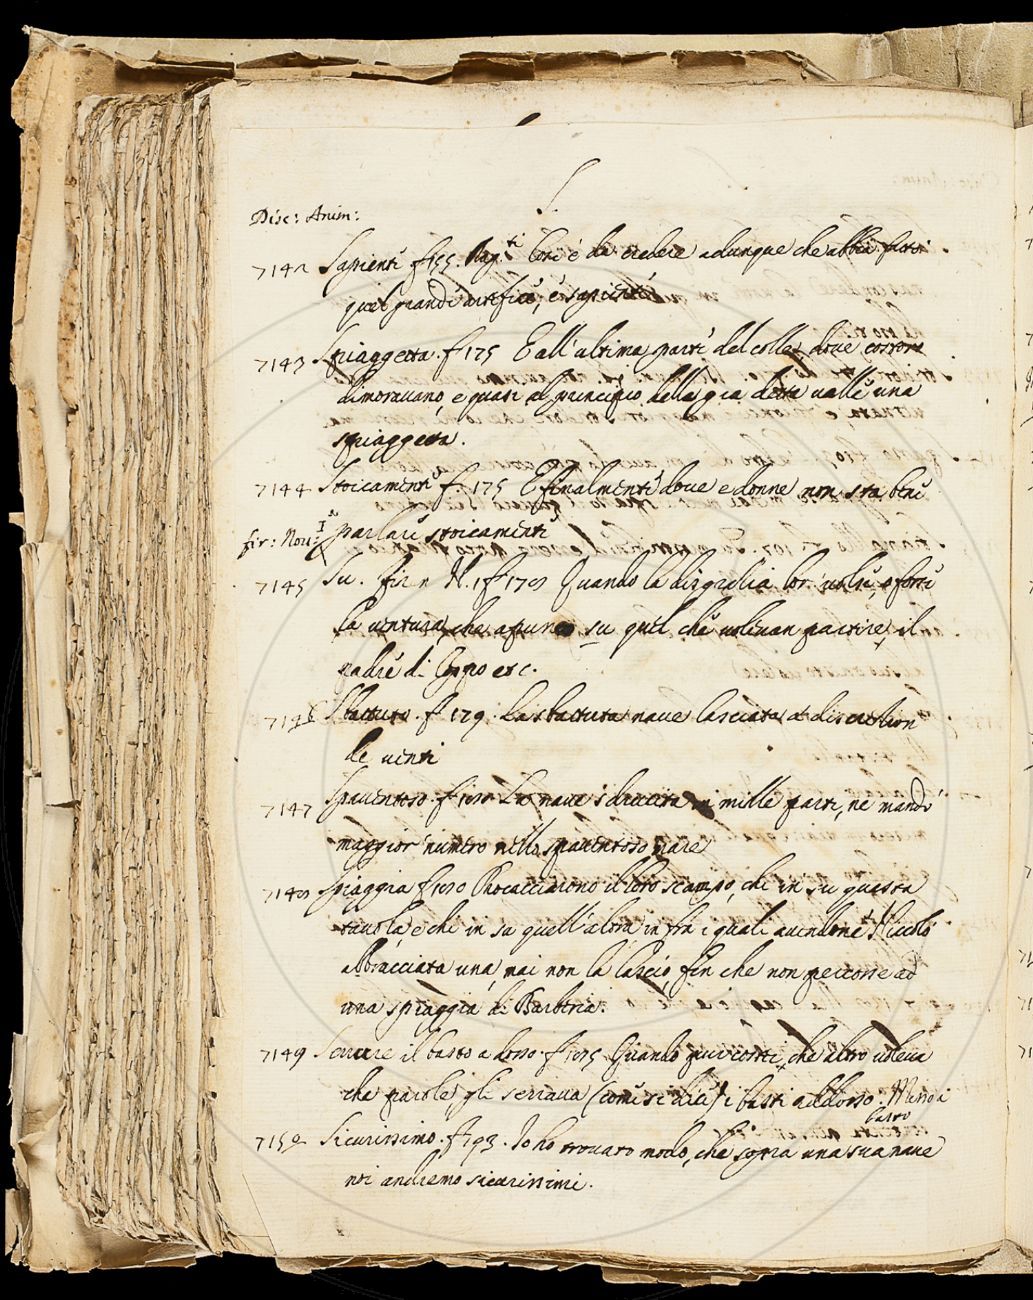 S.
Disc: Anim:
7142 Sapienti f. 155. Mag.ti Così è da credere adunque che abbia fatti
quei grandi artefici, e sapienti
7143 Spiaggetta. f. 175 E all'ultima parte del colle, dove costoro
dimoravano, e quasi al principio della gia detta valle una
spiaggetta.
7144 Stoicamente f. 175 E finalmente dove e donne non sta bene
parlare stoicamente
Fir: Nov: I
7145 Su. Quando la disgrazia lor volse, o forse
la ventura, che apunto su quel, che volevan partire, il
padre di etc.
7146 Sbattuta. f. 179. La sbattuta nave lasciata a discrezion
de venti
7147 Spaventoso. f. La nave sdrucita in mille parti, ne mandò
maggior numero nello spaventoso mare
7148 Spiaggia f. Procacciarono il loro scampo, chi in su questa
tavola, e chi in su quell'altra infra i quali avendone Niccolò
abbracciata una, mai non la lasciò, fin che non percosse ad
una spiaggia di Barberia.
7149 Serrare il basto adosso. f. Quando quei cotti, che altro voleva
che parole, gli serrava (come si dice) i basti addosso.
basto
7150 Sicurissimo. f. 193. Io ho trovato modo, che sopra una sua nave
noi andremo sicurissimi.